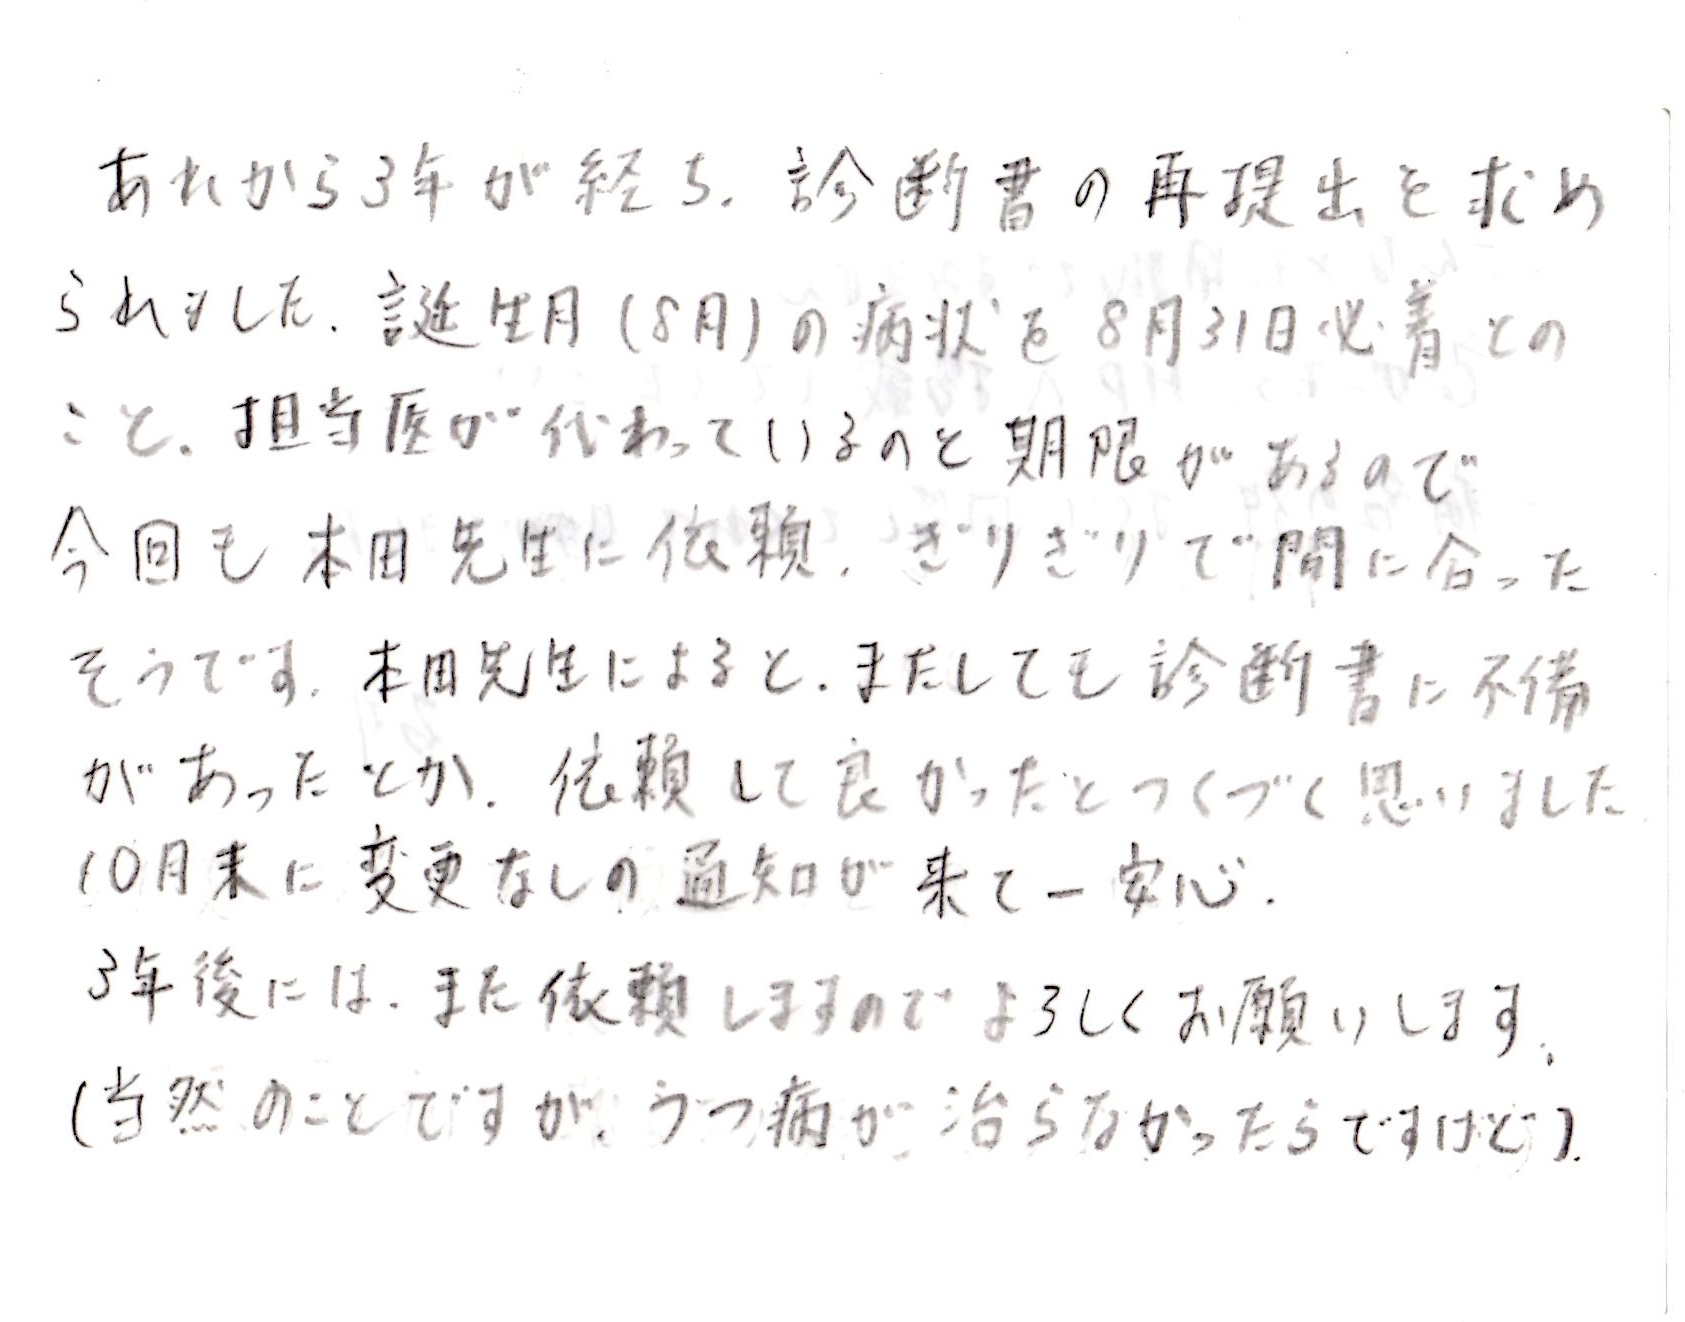 あれから3年が経ち、診断書の再提出を求め
られました。誕生月(8月)の病状を8月31日必着との
こと。担当医が代わっているのと期限があるので
今回も本田先生に依頼。ぎりぎりで間に合った
そうです。本田先生によると、またしても診断書に不備
があったとか。依頼して良かったとつくづく思いました。
10月末に変更なしの通知が来て一安心。
3年後には、また依頼しますのでよろしくお願いします。
(当然のことですが、うつ病が治らなかったらですけど)。